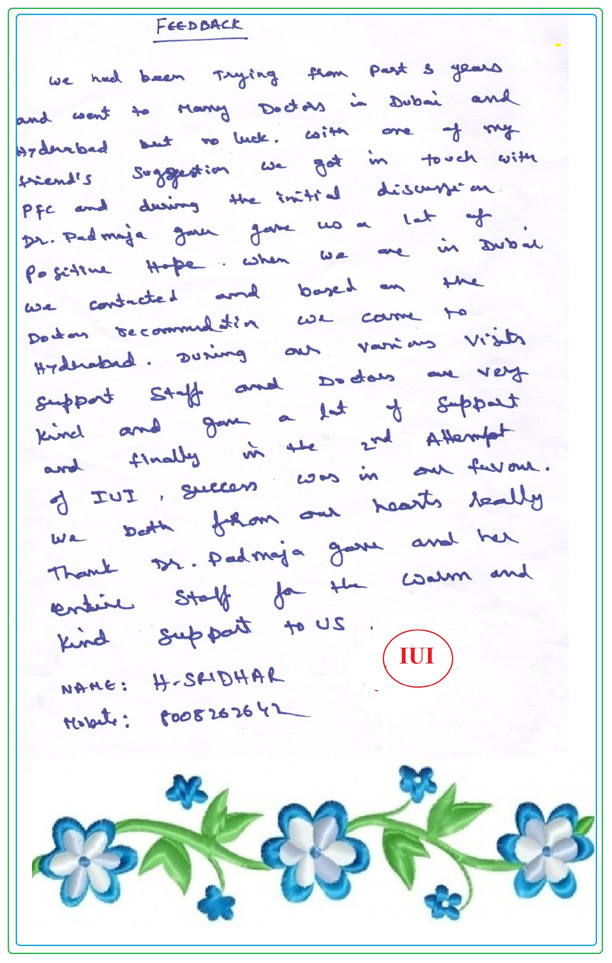 FEEDBACK
We had been Trying from Past 3 years
and went to Many Doctors in Dubai and
Hyderabad but no luck. With one of my
friend's Suggestion we got in touch with
PFC and during the initial discussion
Dr. Padmaja garu gave us a lot of
Positive Hope. When we are in Dubai
we contacted and based on the
Doctors recommendation we came to
Hyderabad. During our various visits
Support Staff and Doctors are very
kind and gave a lot of Support
and finally in the 2nd Attempt
of IUI, success was in our favour.
We both from our hearts really
Thank Dr. Padmaja garu and her
entire Staff for the warm and
kind support to US.
IUI
NAME: H. SRIDHAR
Mobile: 8008262642